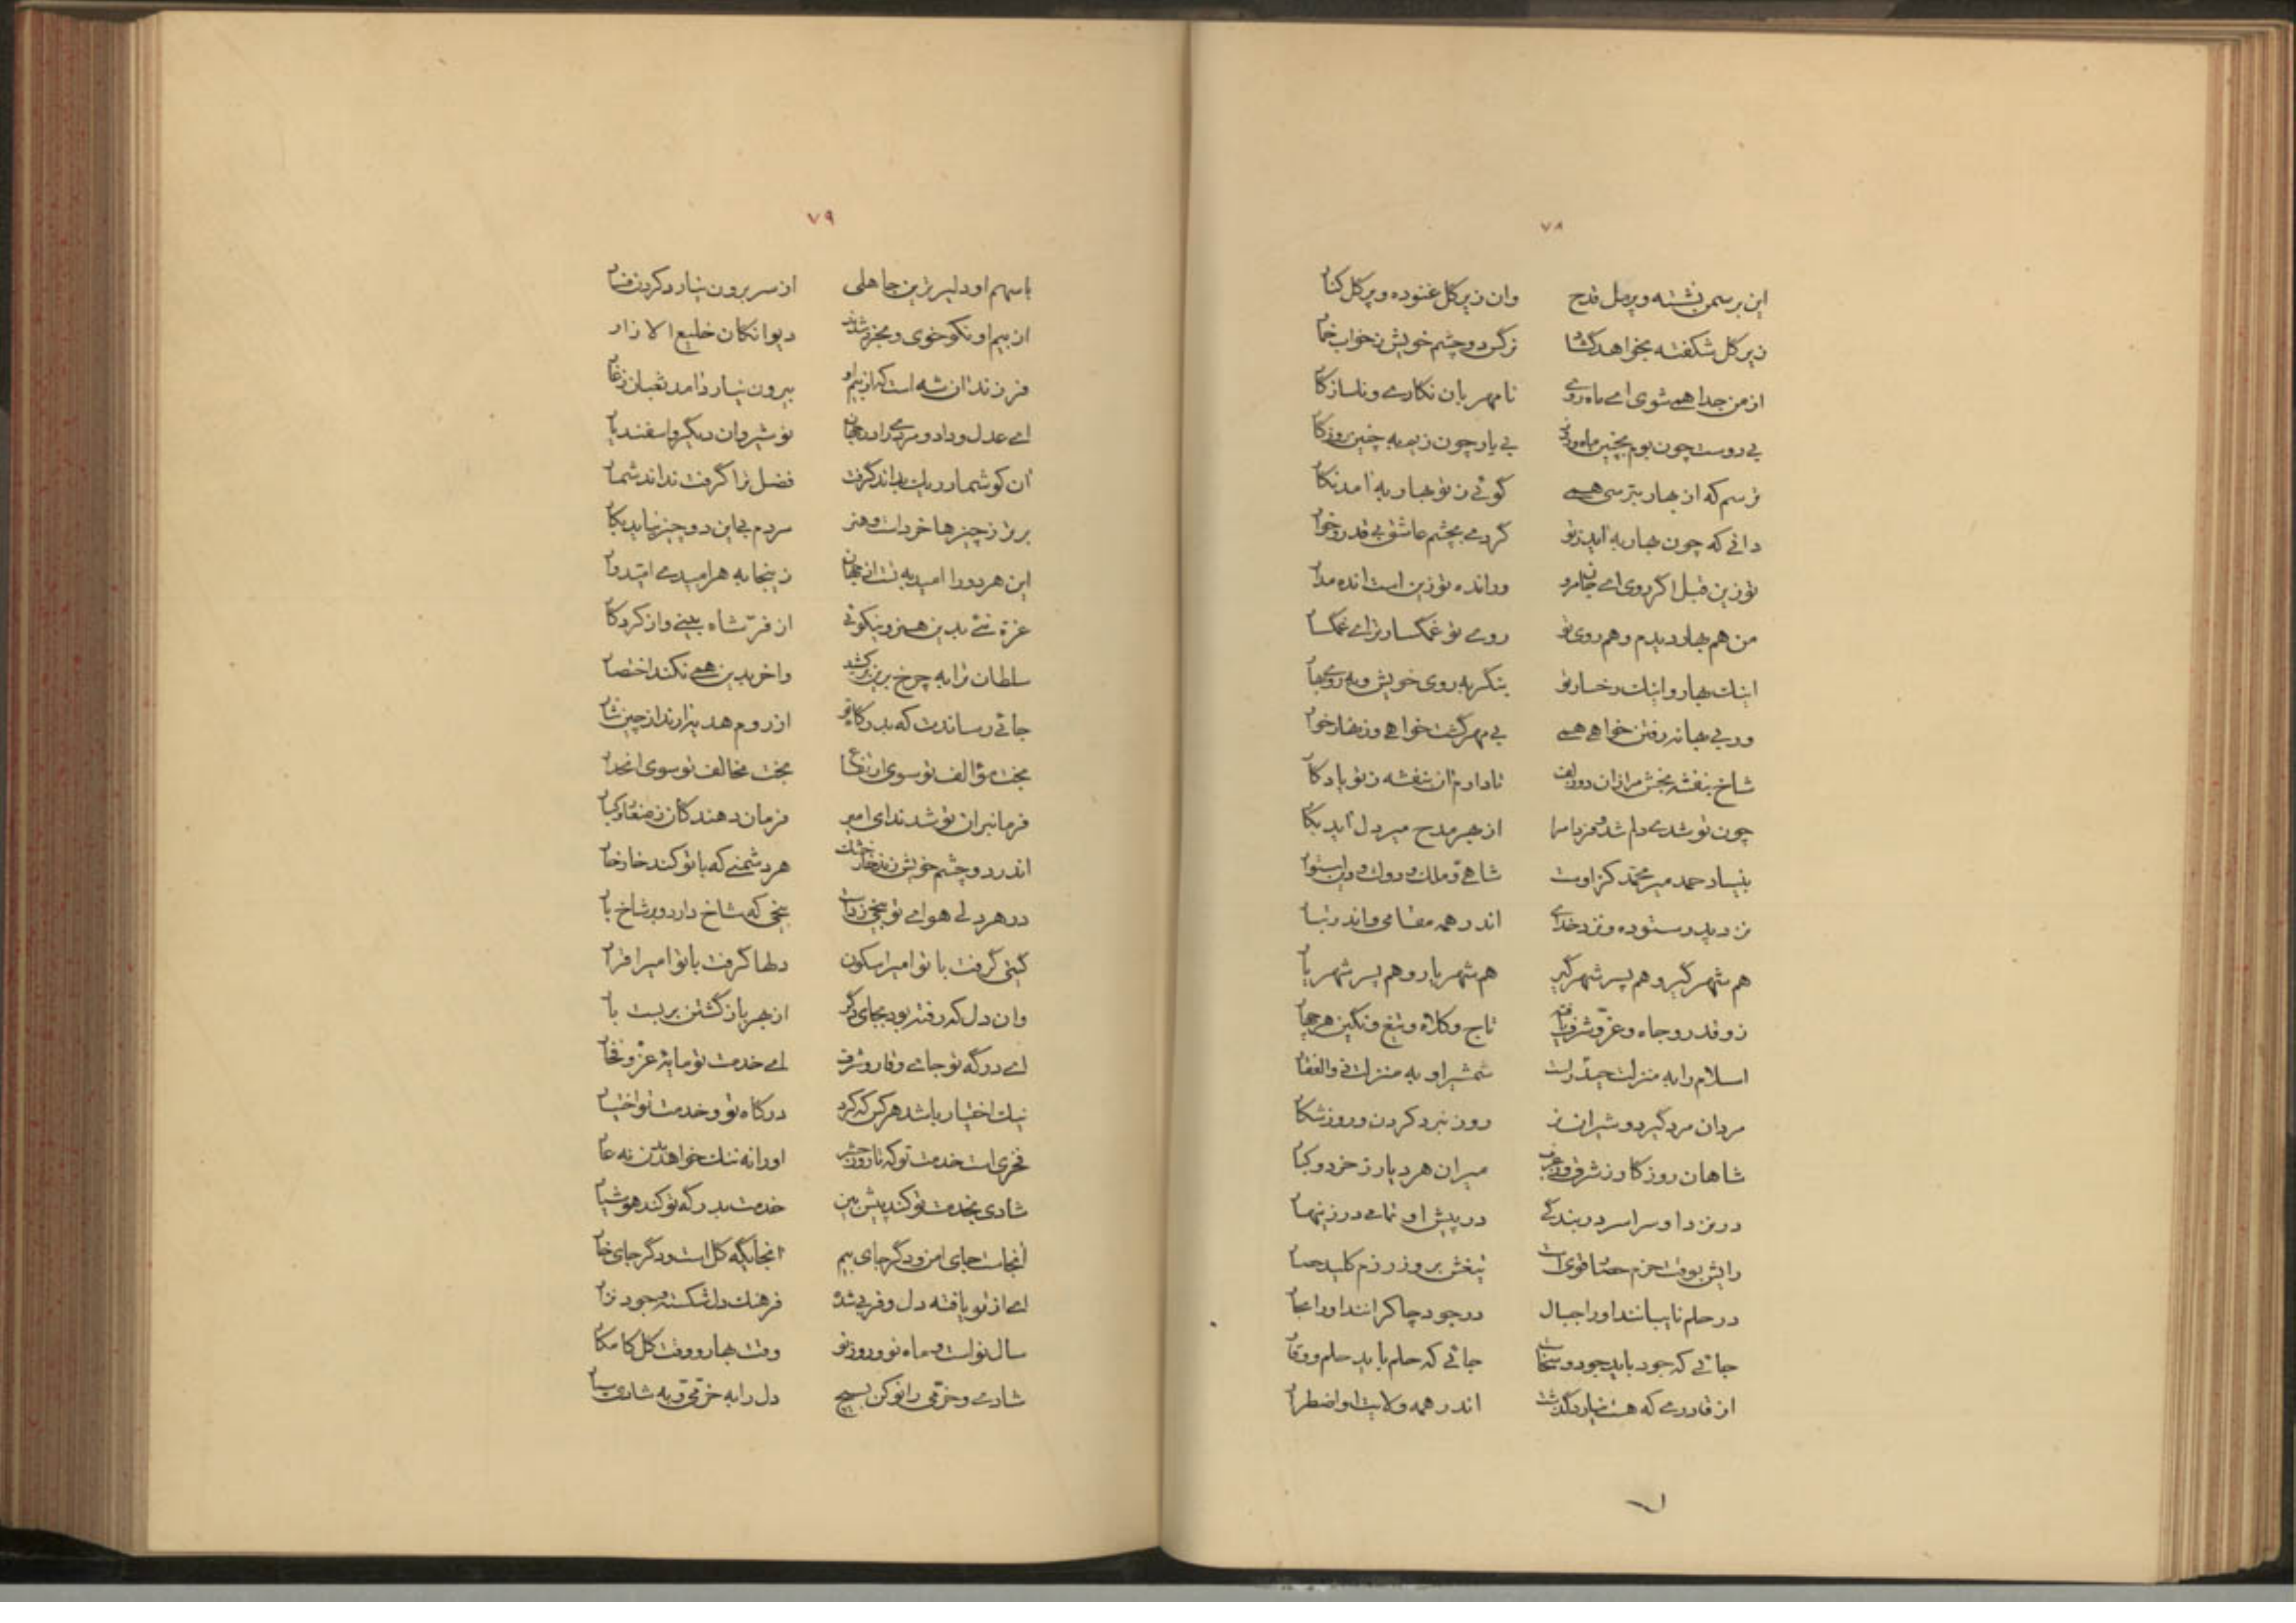 ۷۸
این بر سمن نشسته و پر مل قدح وان زیر کل غنوده و پر کل کنار
زیر کل شکفته بخواهد کشاد نرکس دو چشم خویش ز خواب خمار
از من جدا همی شوی ای ماه روی نامهربان نکاری و ناسازکار
بی دوست چون بوم بچنین ماه و روز بی یار چون زیم به چنین روزکار
ترسم که از بهار بترسی همی کوئی ز تو بهار به آمد نکار
دانی که چون بهار به آید ز تو کردی بچشم عاشق بی قدر و خوار
تو زین قبل اکر روی ای جان مرو ور انده تو زین است انده مدار
من هم بهار دیدم و هم روی تو روی تو غمکسارتر ای غمکسار
اینک بهار و اینک رخسار تو بنکر به روی خویش و به روی بهار
ور بی بهانه رفتن خواهی همی بی مهر کشت خواهی و زنهار خوار
شاخ بنفشه بخش مرا زان دو زلف تا دارم آن بنفشه ز تو یادکار
چون تو شدی دلم شد و مر مرا از بهر مدح میر دل آید بکار
بنیاد حمد میر محمد کز اوست شاهی و ملک و دولت و دین استوار
نزد پدر ستوده و نزد خدای اندر همه مقامی و اندر تبار
هم شهرکیر و هم پسر شهرکیر هم شهریار و هم پسر شهریار
زو قدر و جاه و عز و شرف یافته تاج و کلاه و تیغ و نکین هر چهار
اسلام را به منزلت حیدر است شمشیر او به منزلت ذوالفقار
مردان مرد کیرد و شیران نر روز نبرد کردن و روز شکار
شاهان روزکار ز شرق و ز غرب میران هر دیار ز خرد و کبار
در نزد او سراسر در بندکی در پیش او تمامی در زینهار
رایش بوقت حزم حصار قوی است تیغش بروز رزم کلید حصار
در حلم نایبانند او را جبال در جود چاکرانند او را بحار
جائی که جود باید جود و سخاش جائی که حلم باید حلم و وقار
از قادری که هست نیارد کذشت اندر همه ولایت او اضطرار
۷۹
با سهم او دلیرترین جاهلی از سر برون نیارد کردن فسار
از بیم او نکوخوی و بخرد شدند دیوانکان خلیع الاذار
فرزند آن شه است که از بیم او بیرون نیارد آمد ثعبان ز غار
ای عدل و داد و مردی را در جهان نوشیروان دیکر و اسفندیار
آن کو شمار ریک بداند کرفت فضل ترا کرفت نداند شمار
برتر ز چیزها خرد است و هنر مردم بی این دو چیز نیاید بکار
این هر دو را امید به تست از جهان زینجا به هر امیدی امیدوار
غره نئی بدین هنر و نیکوئی از فر شاه بینی و از کردکار
سلطان ترا به چرخ برین برکشد و آخر بدین همی نکند اختصار
جائی رساندت که بدرکاه تو از روم هدیه آرند از چین نثار
بخت مؤالف تو سوی ارتفاع بخت مخالف تو سوی انحدار
فرمانبران تو شدند ای امیر فرمان دهندکان ز صغار و کبار
اندر دو چشم خویش زند خار خشک هر دشمنی که با تو کند خار خار
در هر دلی هوای تو بیخی زدست بیخی که شاخ دارد و بر شاخ بار
کیتی کرفت با تو امیرا سکون دلها کرفت با تو امیرا قرار
وان دل که رفته بود بجای دکر از بهر بازکشتن بربست بار
ای درکه تو جای وقار و شرف ای خدمت تو مایه عز و فخار
نیک اختیار باشد هر کس که کرد درکاه تو و خدمت تو اختیار
فخری است خدمت تو که تا روز حشر او را نه ننک خواهد بدن نه عار
شادی بخدمت تو کند پیش بین خدمت بدرکه تو کند هوشیار
آنجاست جای امن و دکر جای بیم آنجایکه کل است و دکر جای خار
ای از تو یافته دل و فربی شده فرهنک دلشکسته و جود نزار
سال نو است و ماه نو و روز نو وقت بهار و وقت کل کامکار
شادی و خرمی را نو کن بسیج دل را به خرمی و به شادی سپار